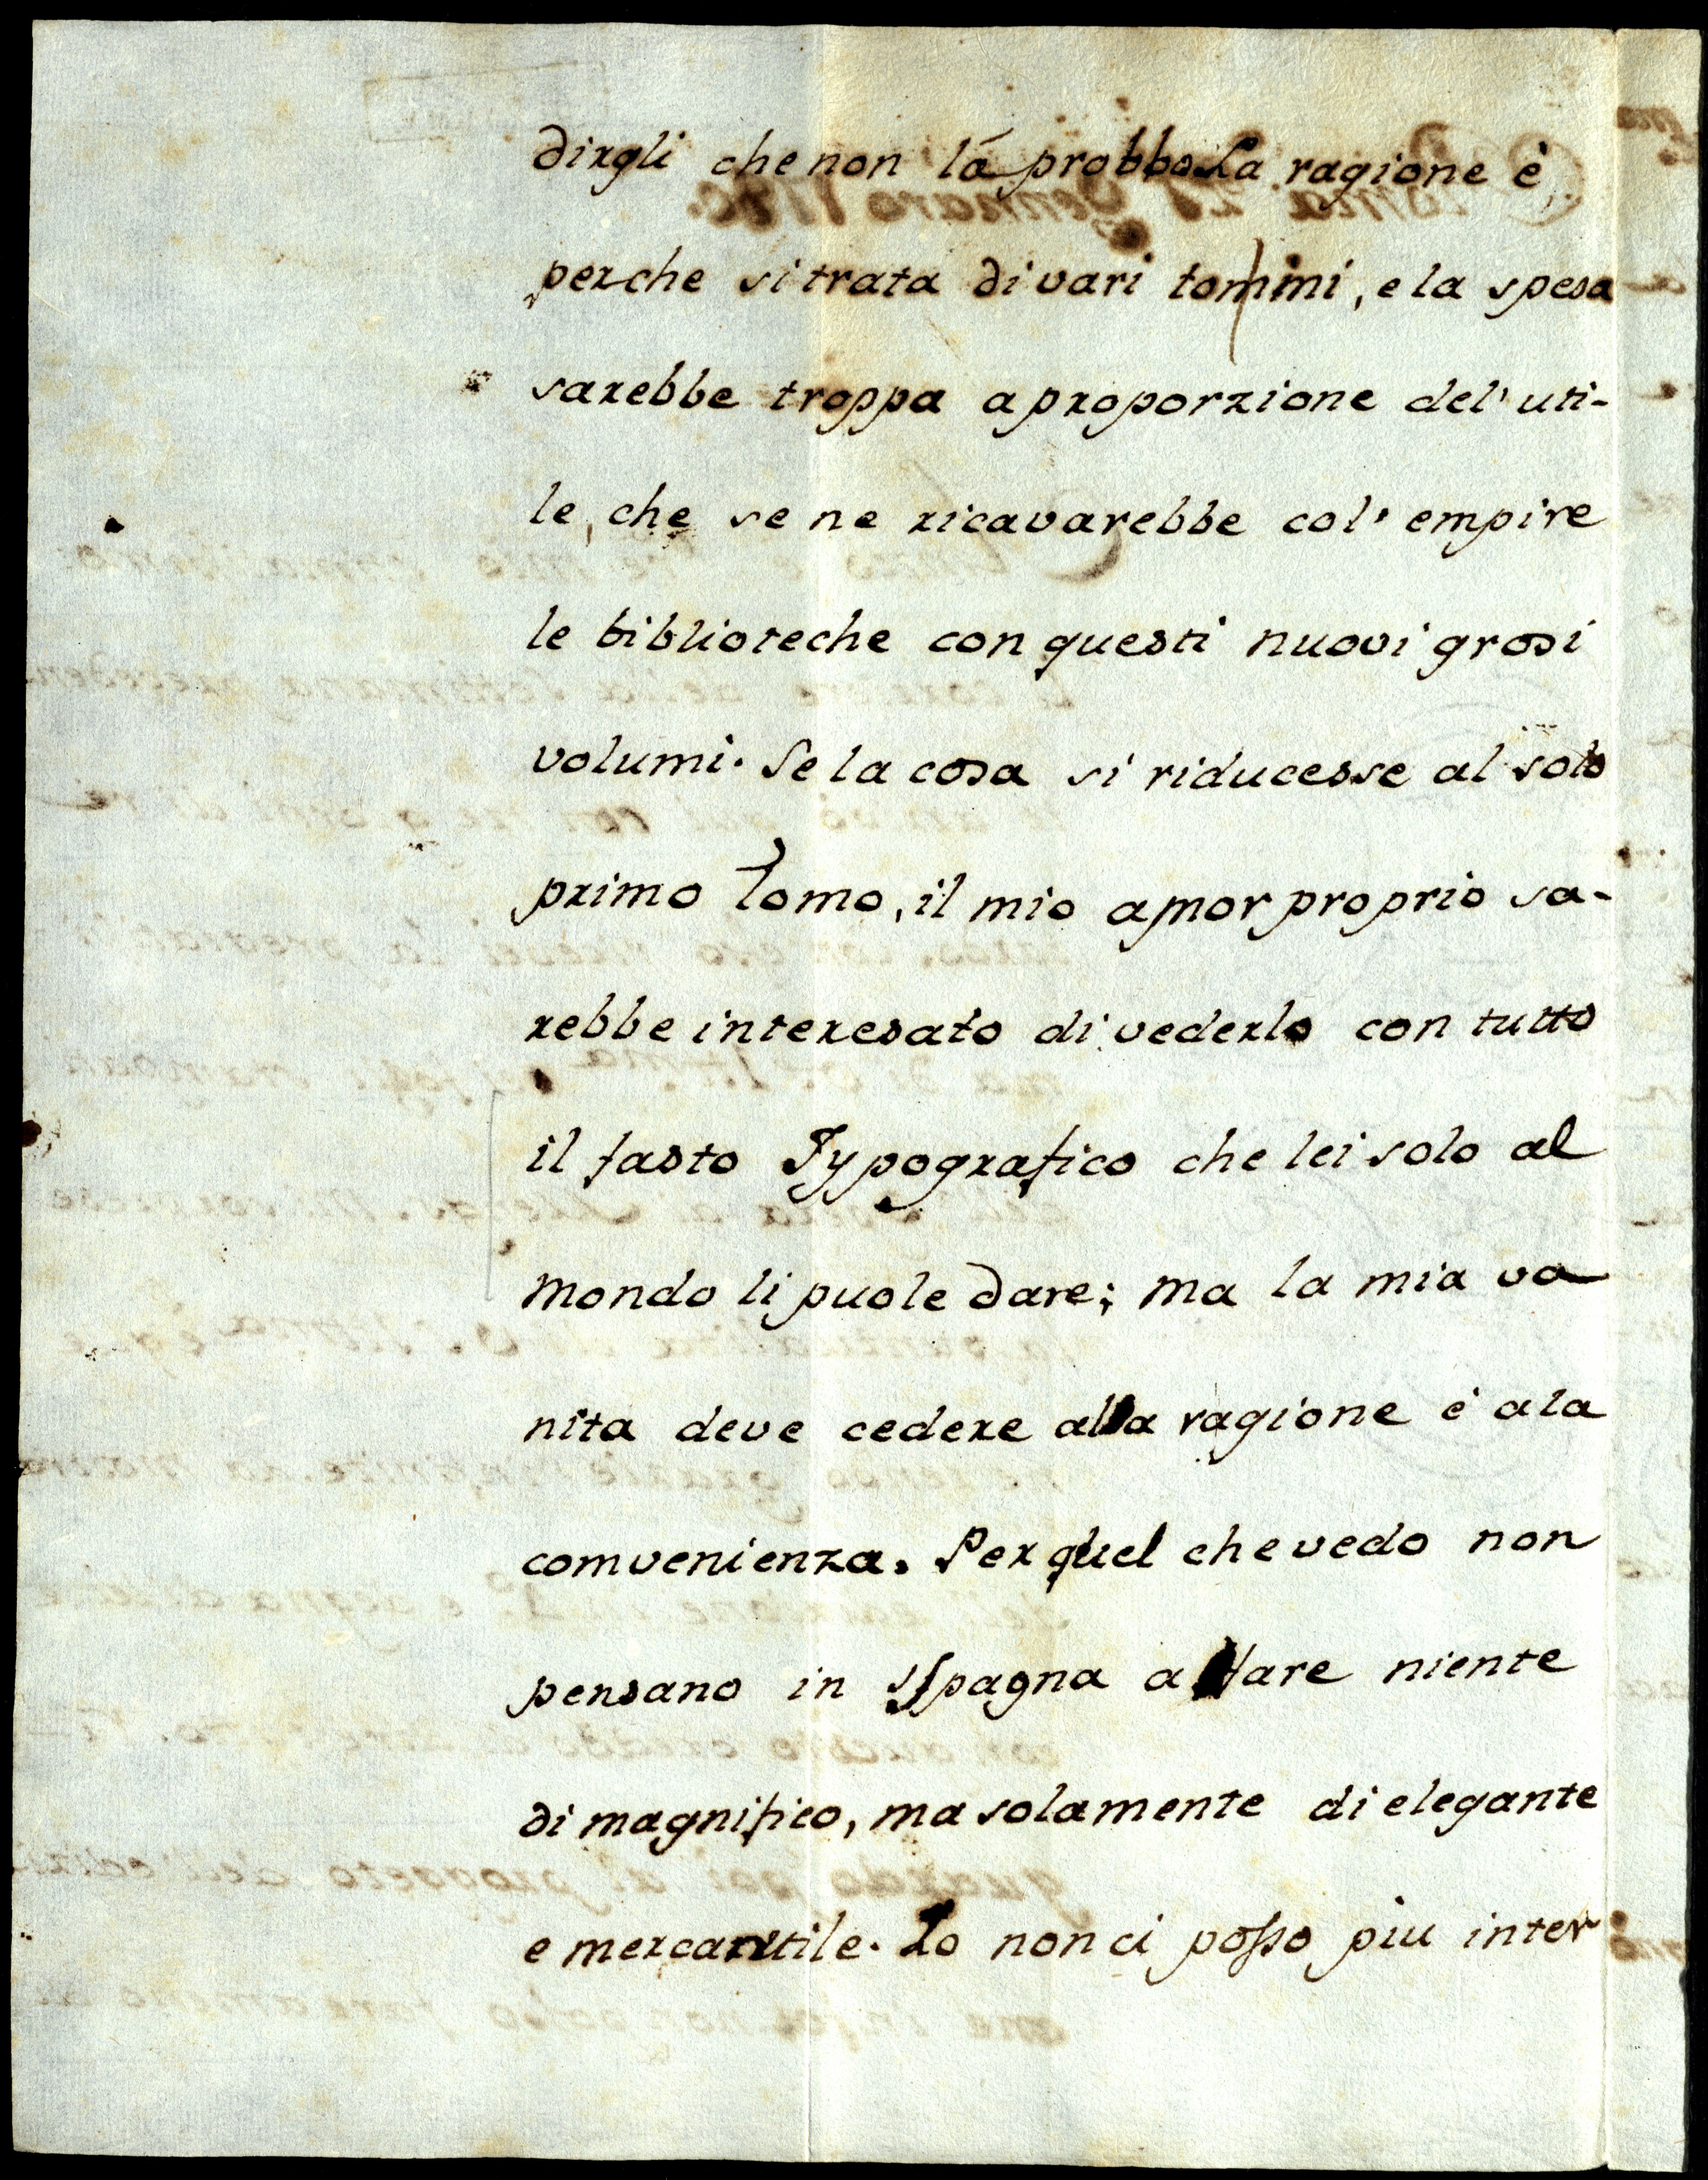 dirgli che non lá probbo. La ragione è
perche si trata di vari tommi, e la spesa
sarebbe troppa a proporzione del' uti-
le, che se ne ricavarebbe col' empire
le biblioteche con questi nuovi grosi
volumi. Se la cosa si riducesse al solo
primo Tomo, il mio amor proprio sa-
rebbe interesato di vederlo con tutto
il fasto Typografico che lei solo al
mondo li puole dare; ma la mia va
nita deve cedere alla ragione é a la
comvenienza. Per quel che vedo non
pensano in Spagna a fare niente
di magnifico, ma solamente di elegante
e mercantile. Io non ci posso piu inter